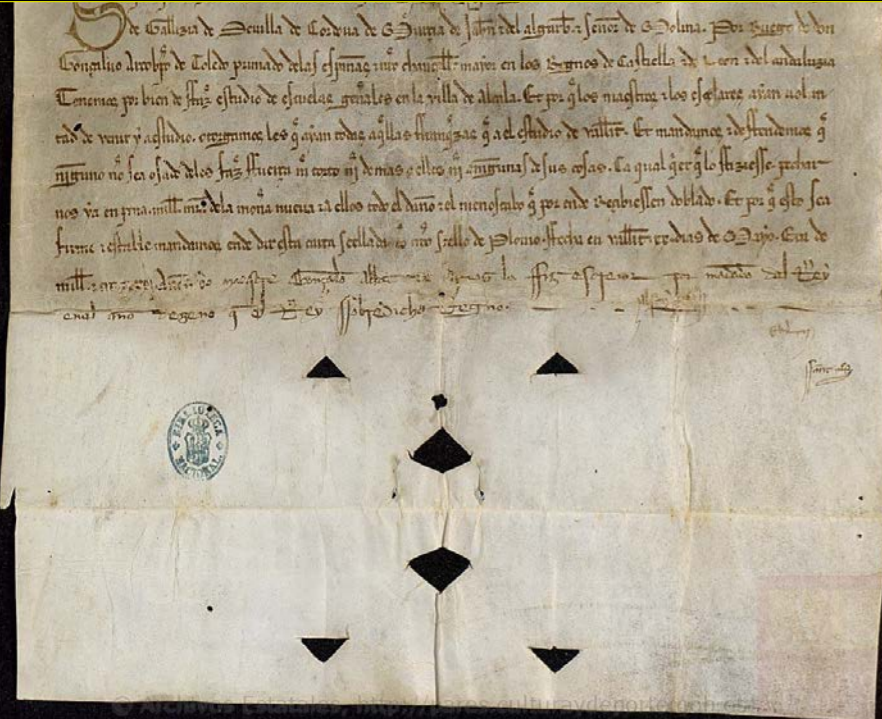 de Gallizia de Sevilla de Cordova de Murçia de Jahn τ del algarbe τ señor de Molina. Por Ruego de don
Gonçaluo Arcobpo de Toledo primado delas espannas τ nro chançeller mayor en los Regnos de Castiella τ de Leon τ del andaluzia
Tenemos por bien de ffaz estudio de escuelas genales en la villa de Alcala. Et por q los maestros τ los escolares ayan uolun
tad de venir y a estudio. otorgamos les q ayan todas aqllas ffranqzas q a el estudio de vallit. Et mandamos τ deffendemos q
ninguno no sea osado de les faz ffuerça ni tuerto ni demas a ellos ni a ningunas de sus cosas. Ca qual qer q lo ffiziesse. pechar
nos ya en pena. mill. mr. dela mona nueua τ a ellos todo el danno τ el menoscabo q por ende Reçibiessen doblado. Et por q esto sea
firme τ estable mandamos ende dar esta carta seellada con nro seello de Plomo. ffecha en vallit. dias de Mayo. Era de
mill. τ Anos. yo maestre Gonçalo Abbat la ffiz escreuir por mandado del Rey
enel anno que el Rey ssobredicho Regno.
BIBLIOTECA NACIONAL
© Archivos Estatales, http://pares.culturaydeporte.gob.es